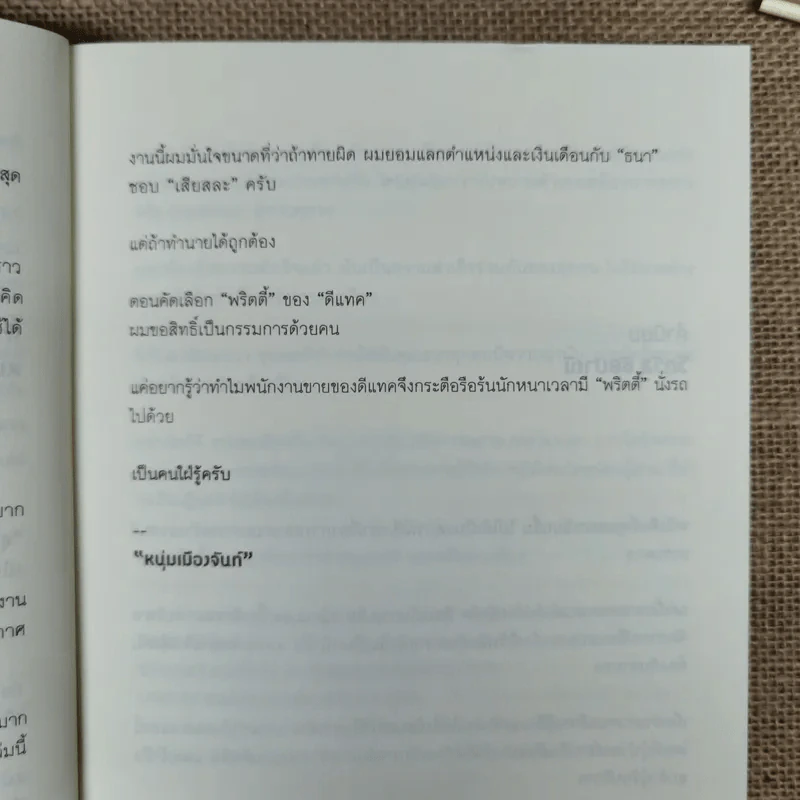 สุด
ราว
คิด
ได้
มาก
งาน
กาศ
มาก
มนี้
งานนี้ผมมั่นใจขนาดที่ว่าถ้าทายผิด ผมยอมแลกตำแหน่งและเงินเดือนกับ “ธนา”
ชอบ “เสียสละ” ครับ
แต่ถ้าทำนายได้ถูกต้อง
ตอนคัดเลือก “พริตตี้” ของ “ดีแทค”
ผมขอสิทธิ์เป็นกรรมการด้วยคน
แค่อยากรู้ว่าทำไมพนักงานขายของดีแทคจึงกระตือรือร้นนักหนาเวลามี “พริตตี้” นั่งรถ
ไปด้วย
เป็นคนใฝ่รู้ครับ
--
“หนุ่มเมืองจันท์”